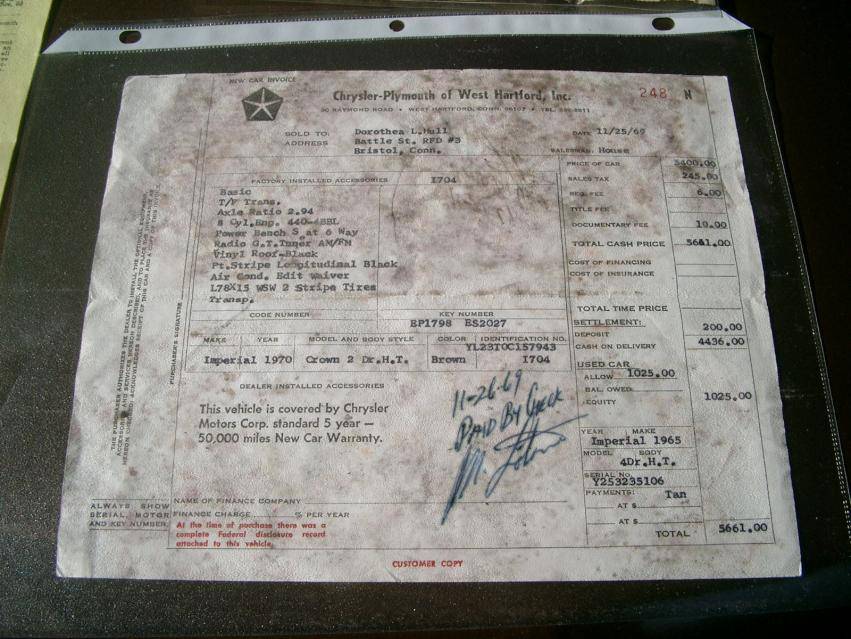 NEW CAR INVOICE
Chrysler-Plymouth of West Hartford, Inc.
248 N
RAYMOND ROAD • WEST HARTFORD, CONN. 06107 • TEL.
SOLD TO: Dorothea L. Hull
DATE 11/25/69
ADDRESS Battle St. RFD #3
Bristol, Conn.
SALESMAN: House
PRICE OF CAR 5400.00
SALES TAX 245.00
REG. FEE 6.00
TITLE FEE
DOCUMENTARY FEE 10.00
TOTAL CASH PRICE 5661.00
COST OF FINANCING
COST OF INSURANCE
TOTAL TIME PRICE
SETTLEMENT:
DEPOSIT 200.00
CASH ON DELIVERY 4436.00
USED CAR
ALLOW 1025.00
BAL. OWED
EQUITY 1025.00
YEAR MAKE
Imperial 1965
MODEL BODY
4Dr.H.T.
SERIAL NO.
Y253235106
PAYMENTS: Tan
AT $
AT $
TOTAL 5661.00
FACTORY INSTALLED ACCESSORIES I704
Basic
T/F Trans.
Axle Ratio 2.94
8 Cyl.Eng. 440-4BBL
Power Bench S at 6 Way
Radio G.T.Tuner AM/FM
Vinyl Roof-Black
Pt.Stripe Longitudinal Black
Air Cond. Edit Waiver
L78X15 WSW 2 Stripe Tires
Transp.
CODE NUMBER KEY NUMBER
EP1798 ES2027
MAKE YEAR MODEL AND BODY STYLE COLOR IDENTIFICATION NO.
YL23T0C157943
Imperial 1970 Crown 2 Dr.H.T. Brown I704
DEALER INSTALLED ACCESSORIES
This vehicle is covered by Chrysler
Motors Corp. standard 5 year —
50,000 miles New Car Warranty.
11-26-69
PAID BY CHECK
NAME OF FINANCE COMPANY
FINANCE CHARGE % PER YEAR
ALWAYS SHOW
SERIAL, MOTOR
AND KEY NUMBER
At the time of purchase there was a
complete Federal disclosure record
attached to this vehicle.
CUSTOMER COPY
PURCHASER'S SIGNATURE
THE PURCHASER AUTHORIZES THE DEALER TO INSTALL THE OPTIONAL EQUIPMENT,